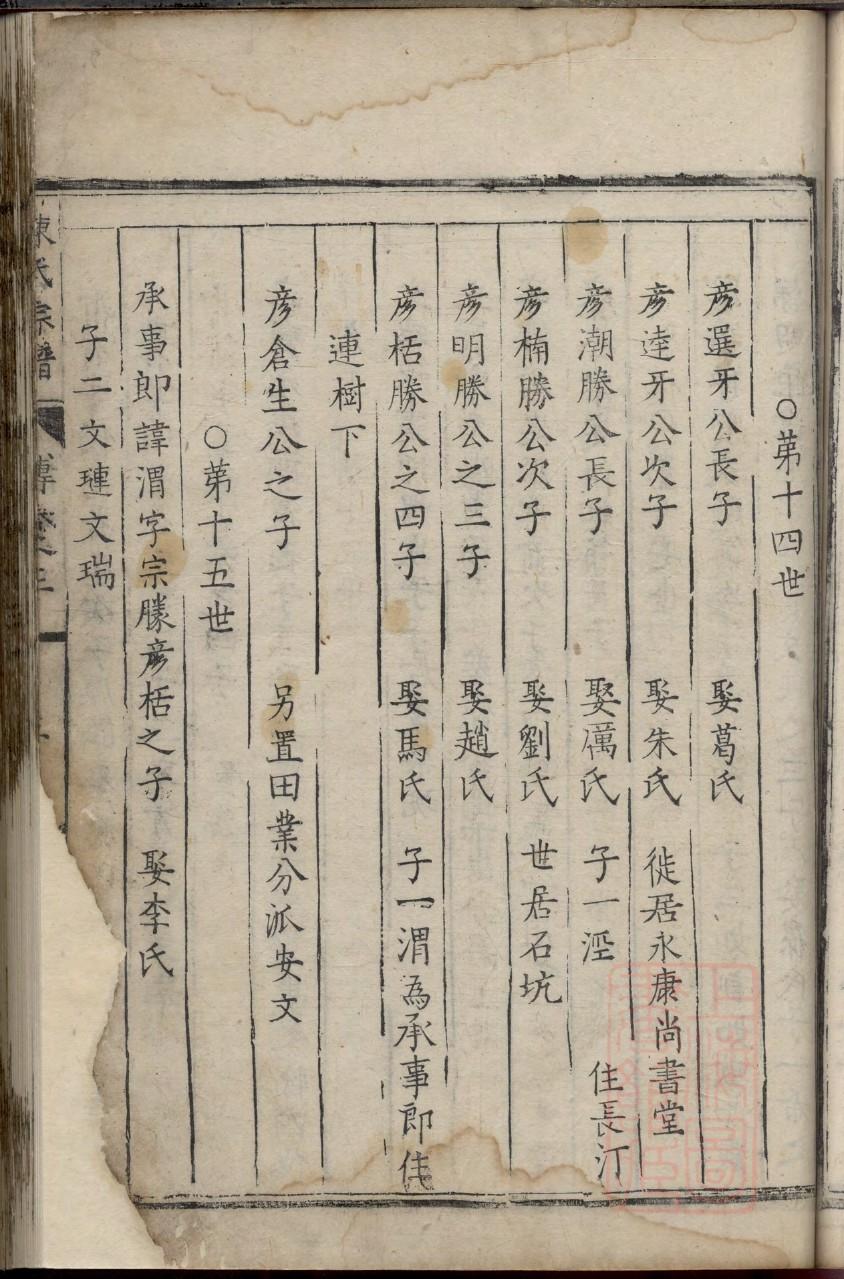 ○苐十四世
彦選牙公長子 娶葛氏
彦逹牙公次子 娶朱氏 徙居永康尚書堂
彦潮勝公長子 娶厲氏 子一㴬 住長汀
彦楠勝公次子 娶劉氏 世居石坑
彦明勝公之三子 娶趙氏
彦栝勝公之四子 娶馬氏 子一渭為承事郎住
連樹下
彦倉生公之子 另置田業分派安文
○苐十五世
承事郎諱渭字宗滕彦栝之子 娶李氏
子二文璉文瑞
陳氏宗譜